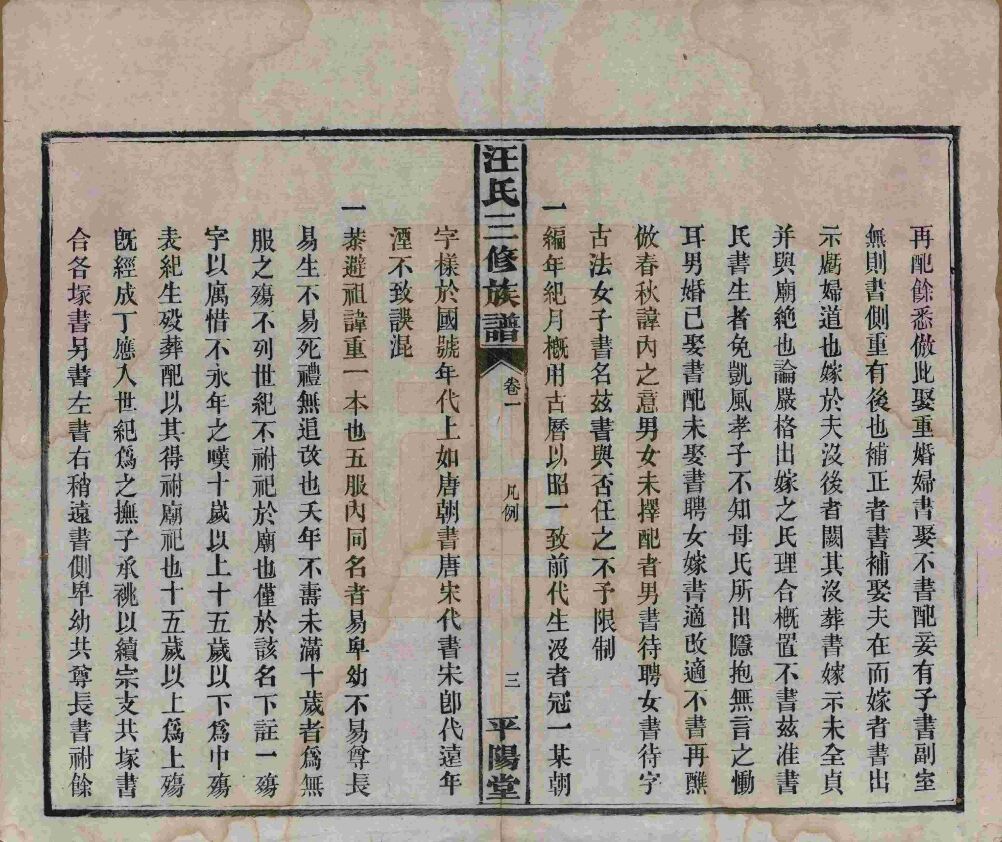 再配餘悉倣此娶重婚婦書娶不書配妾有子書副室
無則書側重有後也補正者書補娶夫在而嫁者書出
示虧婦道也嫁於夫沒後者闕其沒葬書嫁示未全貞
并與廟絶也論嚴格出嫁之氏理合概置不書兹准書
氏書生者免凱風孝子不知母氏所出隱抱無言之慟
耳男婚已娶書配未娶書聘女嫁書適改適不書再醮
倣春秋諱內之意男女未擇配者男書待聘女書待字
古法女子書名兹書與否任之不予限制
一編年紀月概用古曆以昭一致前代生没者冠一某朝
汪氏三修族譜 卷一 凡例 三 平陽堂
字樣於國號年代上如唐朝書唐宋代書宋卽代遠年
湮不致誤混
一恭避祖諱重一本也五服內同名者易卑幼不易尊長
易生不易死禮無追改也夭年不壽未滿十歲者爲無
服之殤不列世紀不祔祀於廟也僅於該名下註一殤
字以寓惜不永年之嘆十歲以上十五歲以下爲中殤
表紀生殁葬配以其得祔廟祀也十五歲以上爲上殤
旣經成丁應入世紀爲之撫子承祧以續宗支共塚書
合各塚書另書左書右稍遠書側卑幼共尊長書祔餘